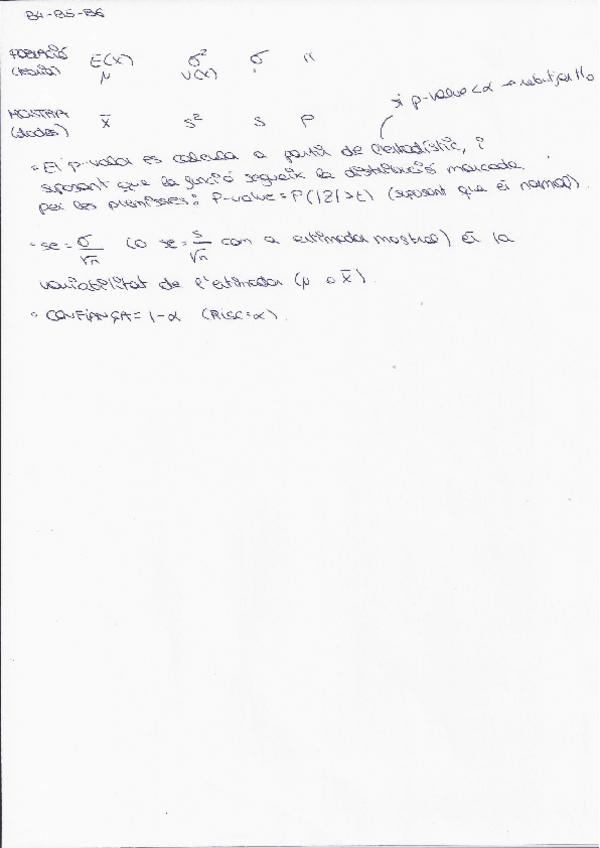 B4-B5-B6
POBLACIÓ E(X) σ² σ π
(teoria) μ V(X)
si p-valor < α → rebutjar H₀
MOSTRA x̄ s² s P
(dades)
- El p-valor es calcula a partir de l'estadístic, i
suposant que la funció segueix la distribució marcada
per les premisses: P-value = P(|Z| > t) (suposant que és normal).
- se = σ/√n (o se = s/√n com a estimador mostral) és la
variabilitat de l'estimador (μ o x̄).
- CONFIANÇA = 1-α (RISC = α).